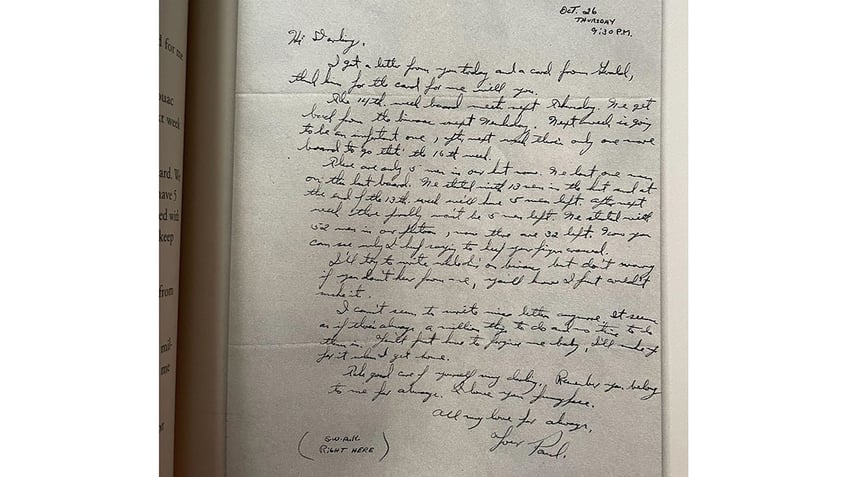 d for me
ouac
week
ard. We
have 5
ed with
keep
from
mil-
me
OCT. 26
THURSDAY
9:30 P.M.
Hi Darling,
I got a letter from you today and a card from
for the card for me will you.
The 14th week board meets next We get
back from the next Next week is going
to be an important one, after next week there's only one more
board to go that's the 16th week.
There are only 5 men in our hut now. We lost one man
on the last board. We started with 13 men in the hut and at
the end of the 13th week we'll have 5 men left. After next
week there won't be 5 men left. We started with
52 men in our platoon, now there are 32 left. Now you
can see why I keep saying to keep your fingers crossed.
I'll try to write while I'm on but don't worry
if you don't hear from me, you'll know I just couldn't
make it.
I can't seem to write nice letters anymore. It seems
as if there's always a million things to do and no time to do
them in. You'll just have to forgive me baby, I'll make up
for it when I get home.
Take good care of yourself my darling. Remember you belong
to me for always. I love you
All my love for always,
Your Paul.
(S.W.A.K.
RIGHT HERE)